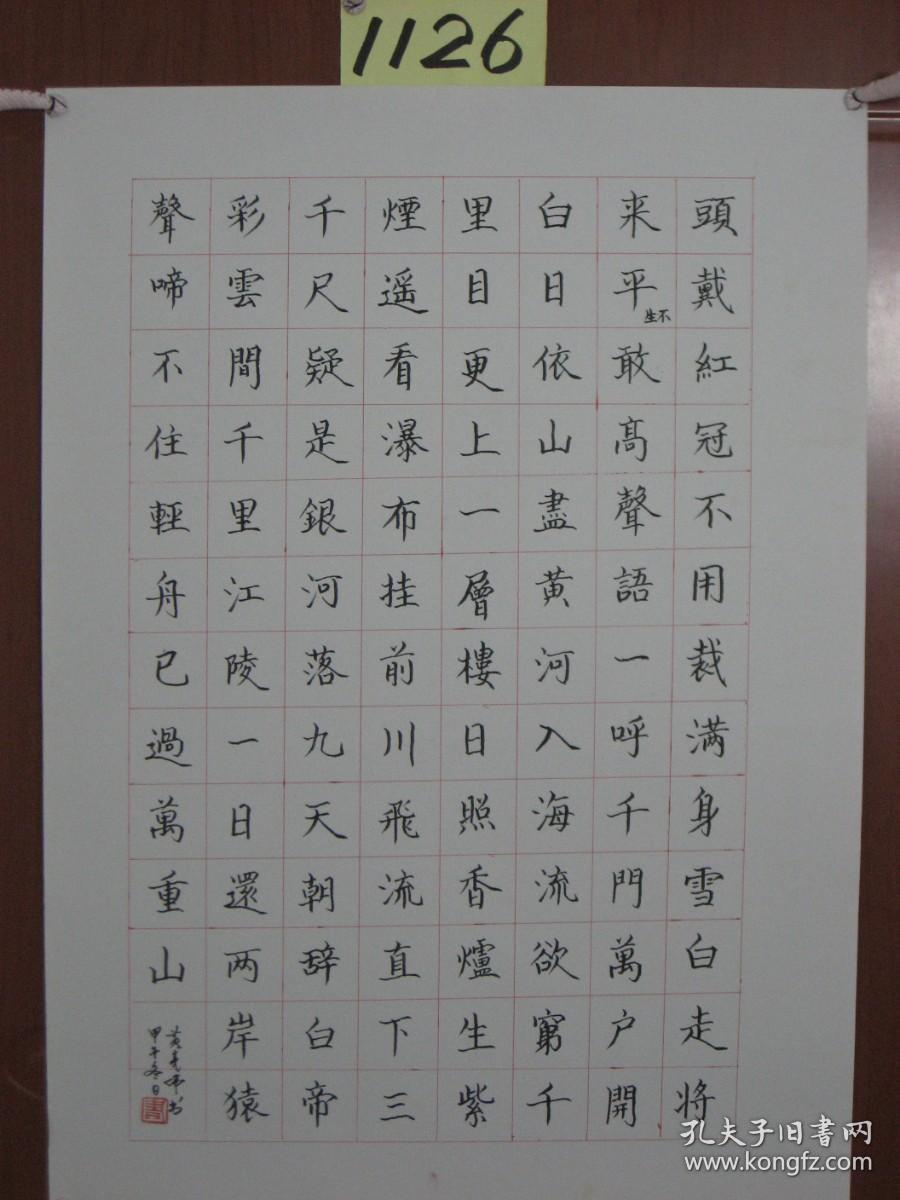 1126
頭戴紅冠不用裁满身雪白走将
来平敢高聲語一呼千門萬户開
不生
白日依山盡黄河入海流欲窮千
里目更上一層樓日照香爐生紫
煙遥看瀑布挂前川飛流直下三
千尺疑是銀河落九天朝辞白帝
彩雲間千里江陵一日還两岸猿
聲啼不住輕舟已過萬重山
甲午冬日
孔夫子旧書网
www.kongfz.com